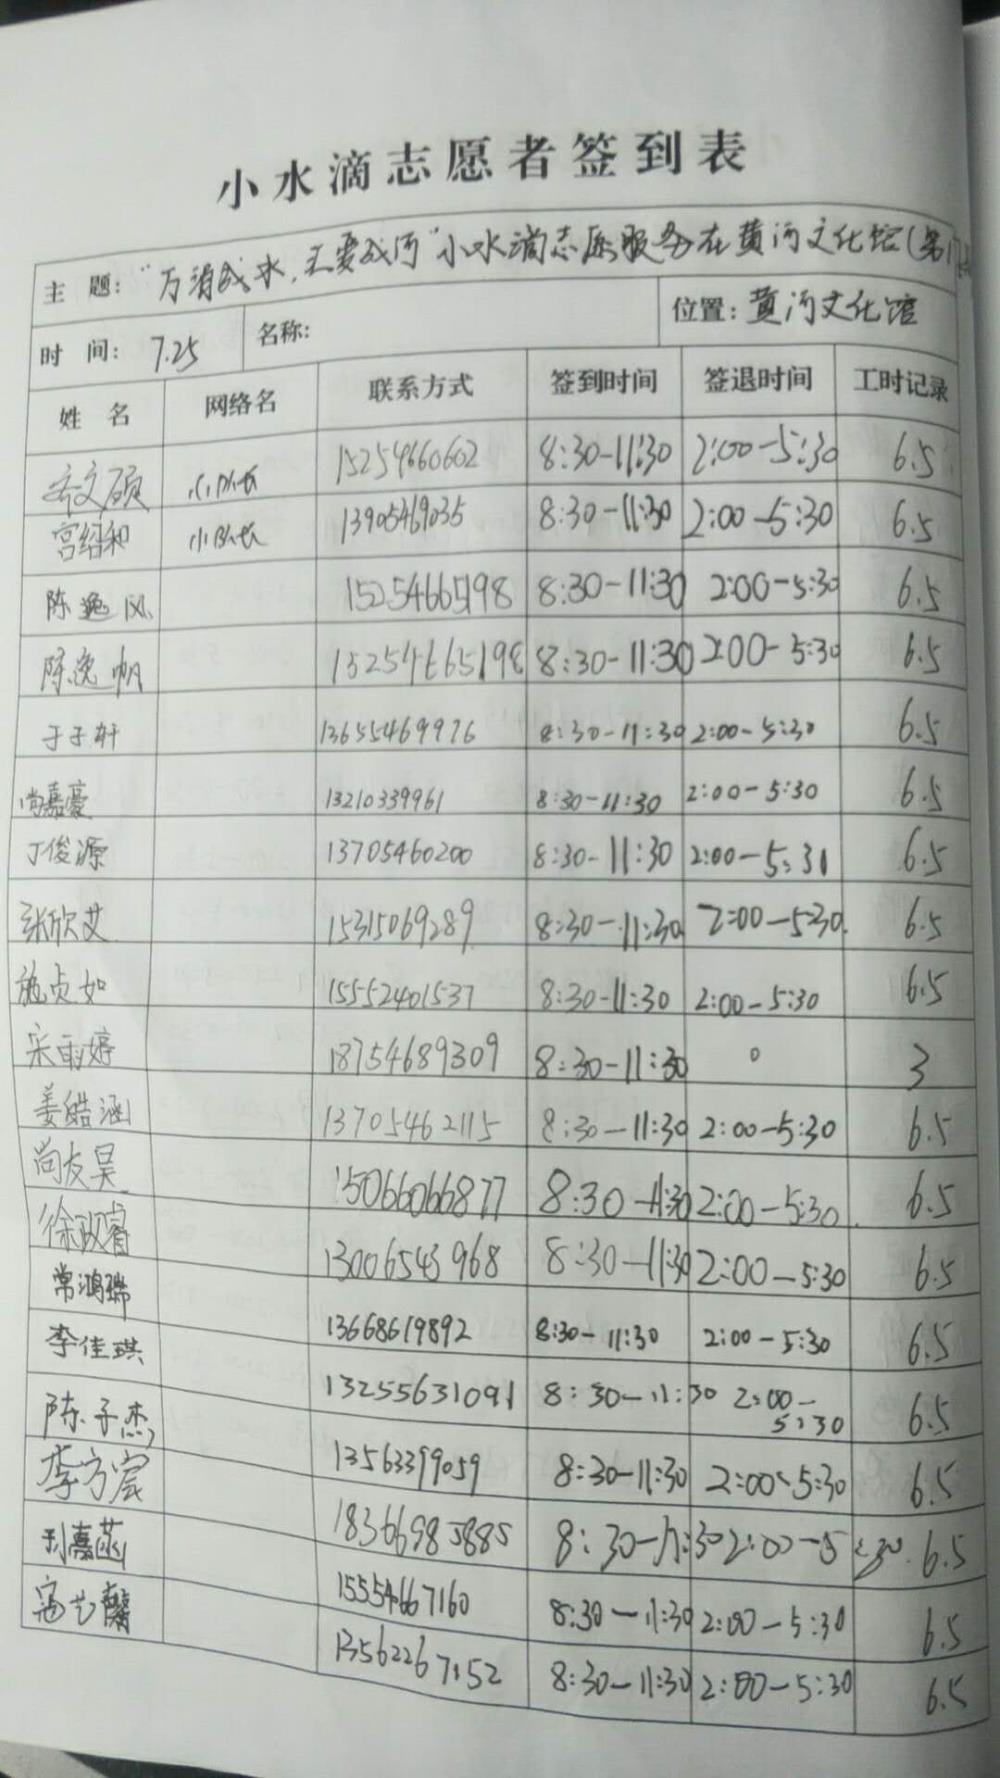 小水滴志愿者签到表
主 题：“万涓成水，汇聚成河”小水滴志愿服务在黄河文化馆（第17
时 间： 7.25 名称： 位置：黄河文化馆
姓 名 网络名 联系方式 签到时间 签退时间 工时记录
齐文硕 小队长 15254660602 8:30-11:30 2:00-5:30 6.5
宫绍和 小队长 13905469035 8:30-11:30 2:00-5:30 6.5
陈逸风 15254665198 8:30-11:30 2:00-5:30 6.5
陈逸帆 15254665198 8:30-11:30 2:00-5:30 6.5
于子轩 13655469976 8:30-11:30 2:00-5:30 6.5
尚嘉豪 13210339961 8:30-11:30 2:00-5:30 6.5
丁俊源 13705460200 8:30-11:30 2:00-5:31 6.5
张欣艾 15315069289 8:30-11:30 2:00-5:30 6.5
施贞如 15552401537 8:30-11:30 2:00-5:30 6.5
宋雨婷 18754689309 8:30-11:30 0 3
姜皓涵 13705462115 8:30-11:30 2:00-5:30 6.5
尚友昊 15066066877 8:30-11:30 2:00-5:30 6.5
徐政睿 13006543968 8:30-11:30 2:00-5:30 6.5
常鸿瑞 13668619892 8:30-11:30 2:00-5:30 6.5
李佳琪 13255631091 8:30-11:30 2:00-5:30 6.5
陈子杰 13563399059 8:30-11:30 2:00-5:30 6.5
李方宸 18366985885 8:30-11:30 2:00-5:30 6.5
刘嘉菡 15554667160 8:30-11:30 2:00-5:30 6.5
艺馨 13562267152 8:30-11:30 2:00-5:30 6.5